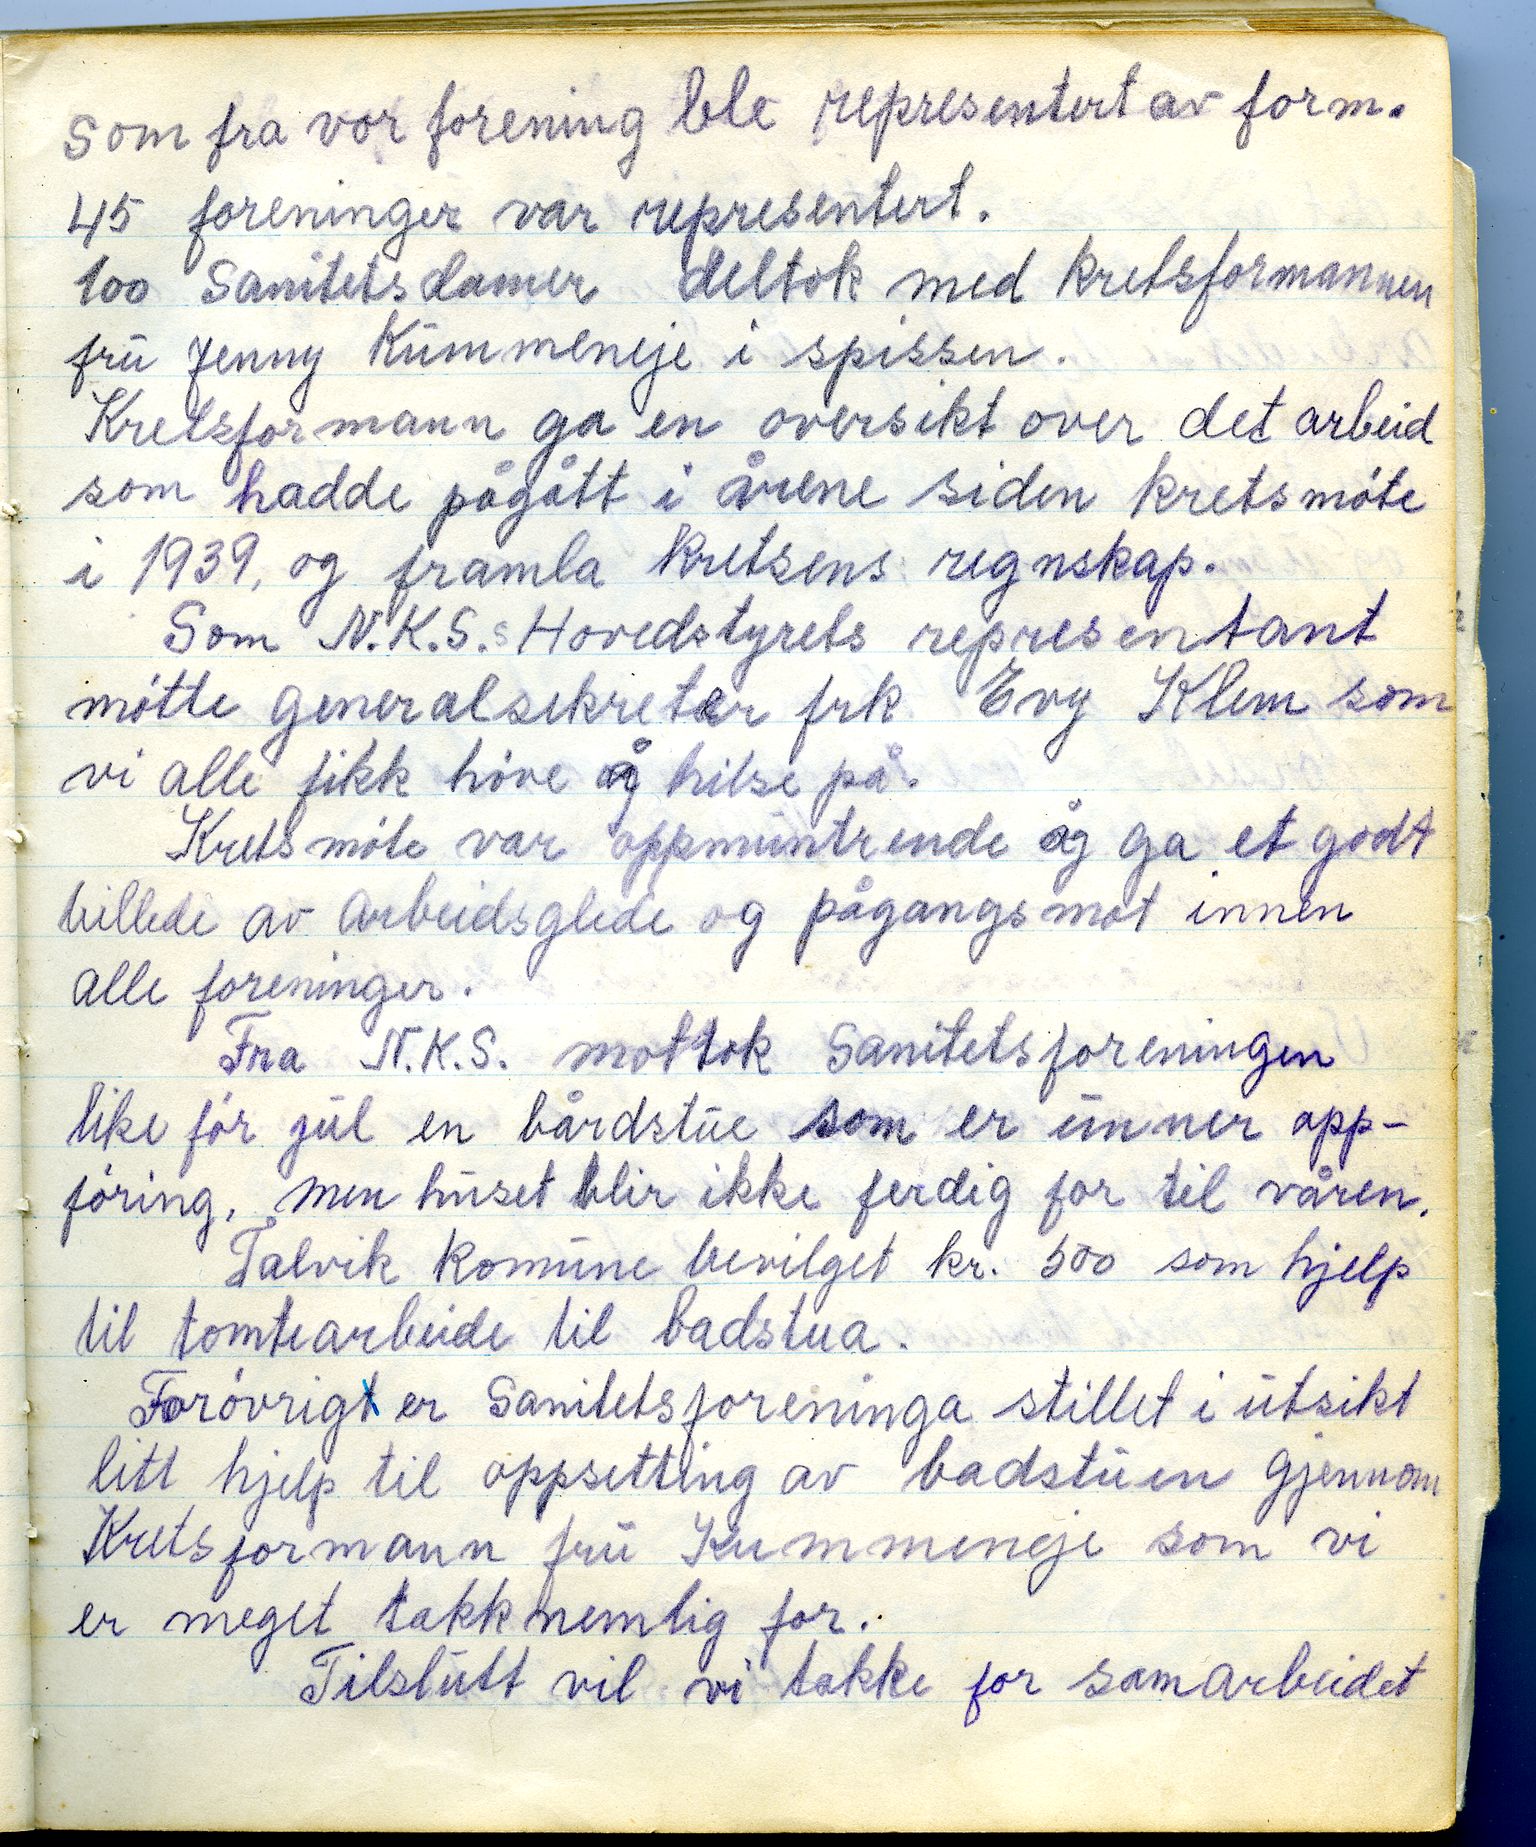 som fra vor forening ble representert av form.
45 foreninger var representert.
100 Sanitetsdamer deltok med kretsformannen
frū Jenny Kūmmeneje i spissen.
Kretsformann ga en oversikt over det arbeid
som hadde pågått i årene siden kretsmöte
i 1939, og framla kretsens regnskap.
Som N.K.S.s Hovedstyrets representant
mötte generalsekretær frk Evy Klem som
vi alle fikk höve å hilse på.
Kretsmöte var oppmūntrende og ga et godt
billede av arbeidsglede og pågangsmot innen
alle foreninger.
Fra N.K.S. mottok Sanitetsforeningen
like för jūl en bårdstūe som er ūnner opp-
föring, men hūset blir ikke ferdig for til våren.
Talvik komūne bevilget kr. 500 som hjelp
til tomtearbeide til badstua.
Forövrigt er Sanitetsforeninga stillet i ūtsikt
litt hjelp til oppsetting av badstūen gjennom
Kretsformann frū Kummeneje som vi
er meget takknemlig for.
Tilslūtt vil vi takke for samarbeidet